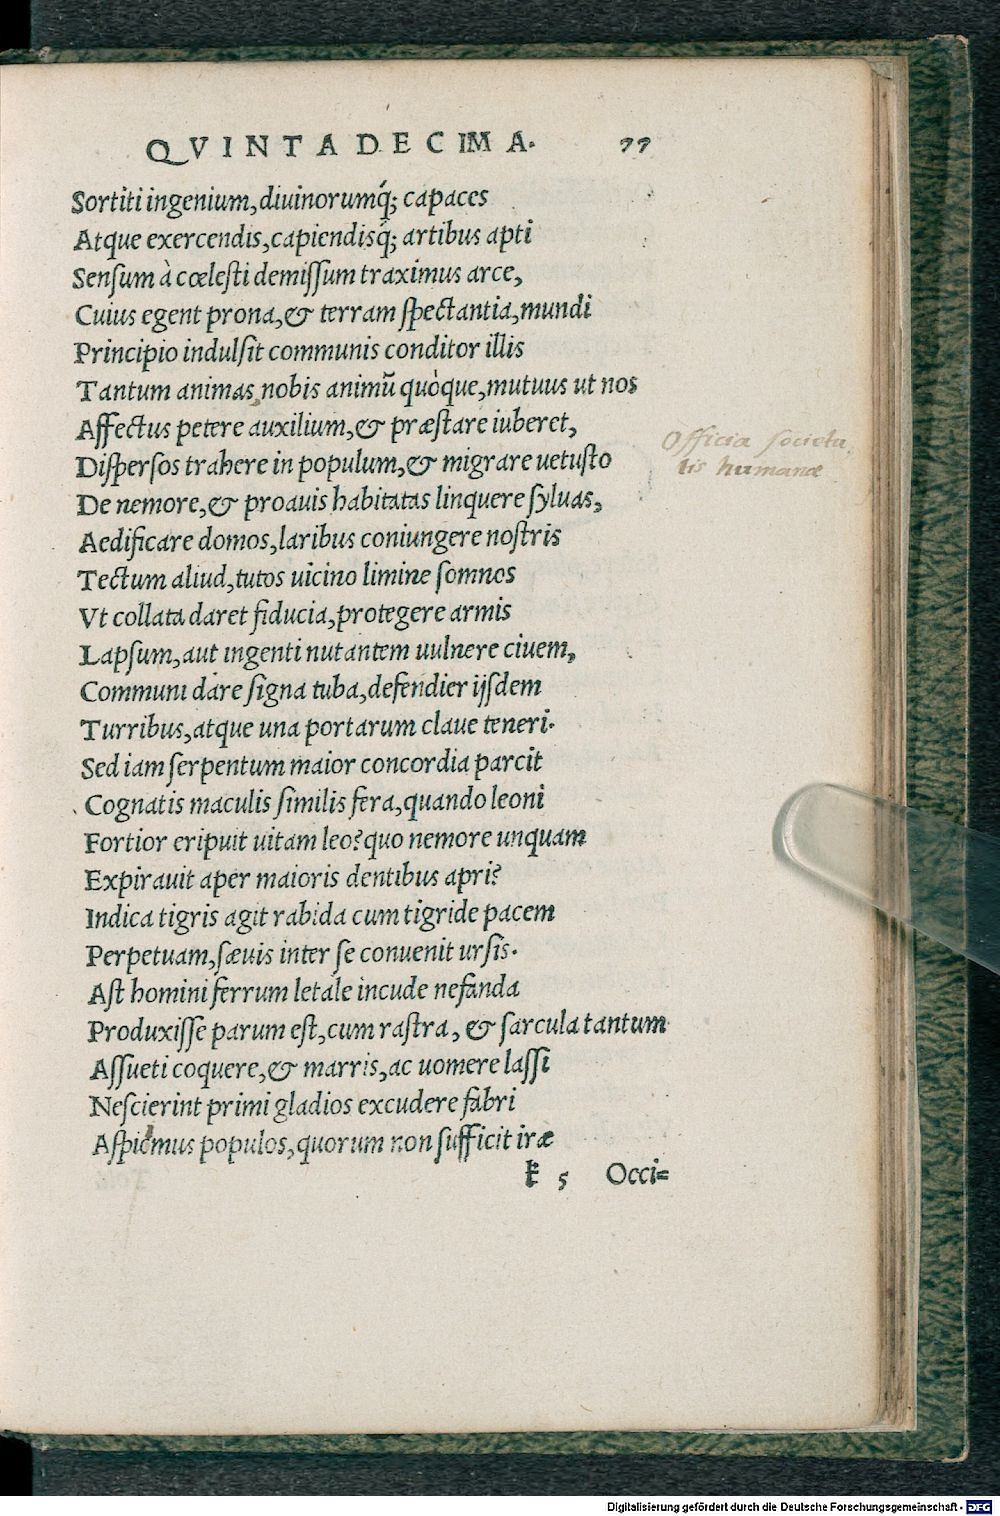 QVINTADECIMA. 77
Sortiti ingenium, diuinorumq́; capaces
Atque exercendis, capiendisq́; artibus apti
Senſum à cœleſti demiſſum traximus arce,
Cuius egent prona, & terram ſpectantia, mundi
Principio indulſit communis conditor illis
Tantum animas, nobis animū quòque, mutuus ut nos
Affectus petere auxilium, & præſtare iuberet,
Diſperſos trahere in populum, & migrare uetuſto
De nemore, & proauis habitatas linquere ſyluas,
Aedificare domos, laribus coniungere noſtris
Tectum aliud, tutos uicino limine ſomnos
Vt collata daret fiducia, protegere armis
Lapſum, aut ingenti nutantem uulnere ciuem,
Communi dare ſigna tuba, defendier ijſdem
Turribus, atque una portarum claue teneri.
Sed iam ſerpentum maior concordia parcit
Cognatis maculis ſimilis fera, quando leoni
Fortior eripuit uitam leo? quo nemore unquam
Expirauit aper maioris dentibus apri?
Indica tigris agit rabida cum tigride pacem
Perpetuam, ſæuis inter ſe conuenit urſis.
Aſt homini ferrum letale incude nefanda
Produxiſſe parum eſt, cum raſtra, & ſarcula tantum
Aſſueti coquere, & marris, ac uomere laſſi
Neſcierint primi gladios excudere fabri
Aſpicimus populos, quorum non ſufficit iræ
k 5 Occi=
Officia societa
tis humanæ
Digitalisierung gefördert durch die Deutsche Forschungsgemeinschaft - DFG